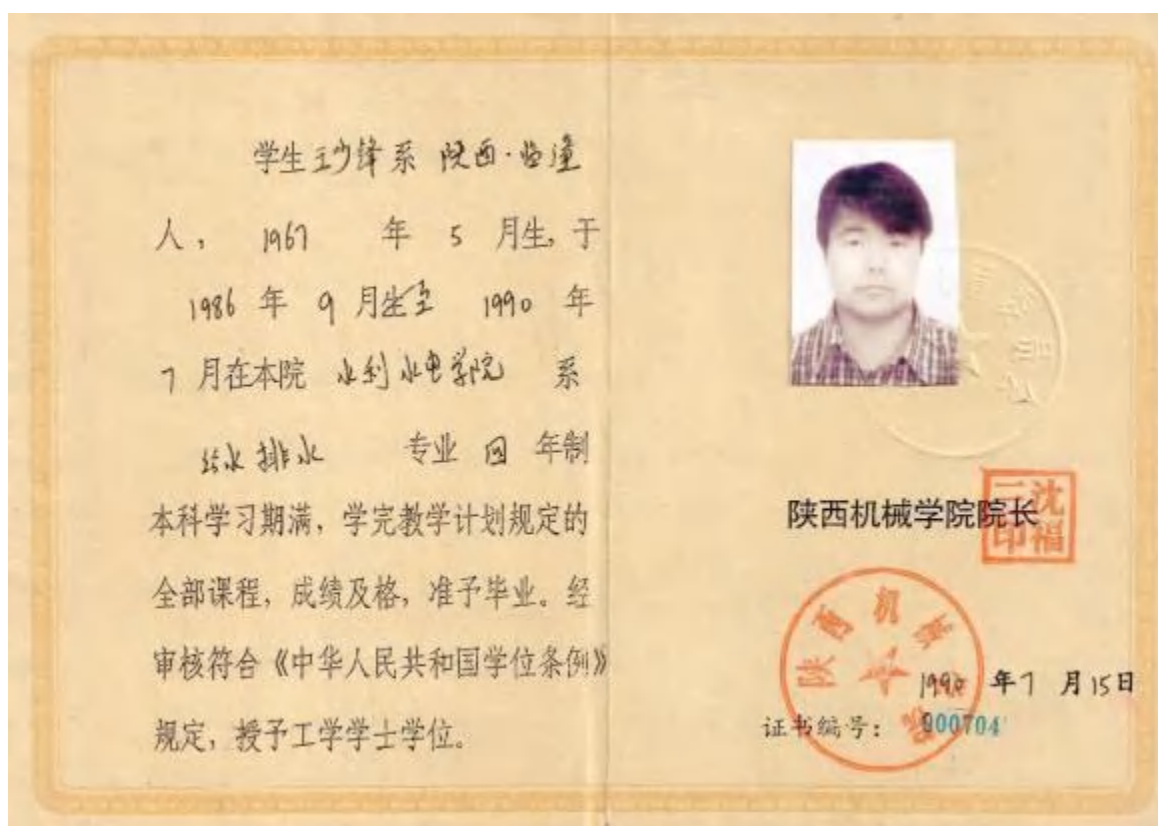 学生王少锋系 陕西·临潼
人, 1967 年 5 月生, 于
1986 年 9 月生至 1990 年
7 月在本院 水利水电学院 系
给水排水 专业 四 年制
本科学习期满, 学完教学计划规定的
全部课程, 成绩及格, 准予毕业。经
审核符合《中华人民共和国学位条例》
规定, 授予工学学士学位。
陕西机械学院院长
沈福三印
陕西机械学院
1990 年 7 月 15 日
证书编号: 900704